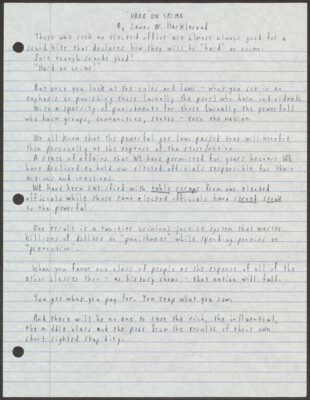 "HARD" ON CRIME
By James W. Harkleroad
Those who seek an elected office are almost always good for a
sound bite that declares how they will be "hard" on crime.
Sure enough sounds good!
"Hard on crime!"
But once you look at the rules and laws - what you see is an
emphasis on punishing those (usually the poor) who harm individuals
With a sparsity of punishments for those (usually the powerful)
who harm groups, communities, states - even the nation.
We all know that the powerful get laws passed that will benefit
them personally at the expense of the state/nation.
A state of affairs that WE have permitted for years because WE
have declined to hold our elected officials responsible for their
actions and inactions.
We have been satisfied with table scraps from our elected
officials while those same elected officials have served steak
to the powerful.
One result is a two-tier criminal justice system that wastes
billions of dollars on "punishment" while spending pennies on
"prevention".
When you favor one class of people at the expense of all of the
other classes then - as history shows - that nation will fall.
You get what you pay for. You reap what you sow.
And there will be no one to save the rich, the influential,
the middle class and the poor from the results of their own
short sighted stupidity.